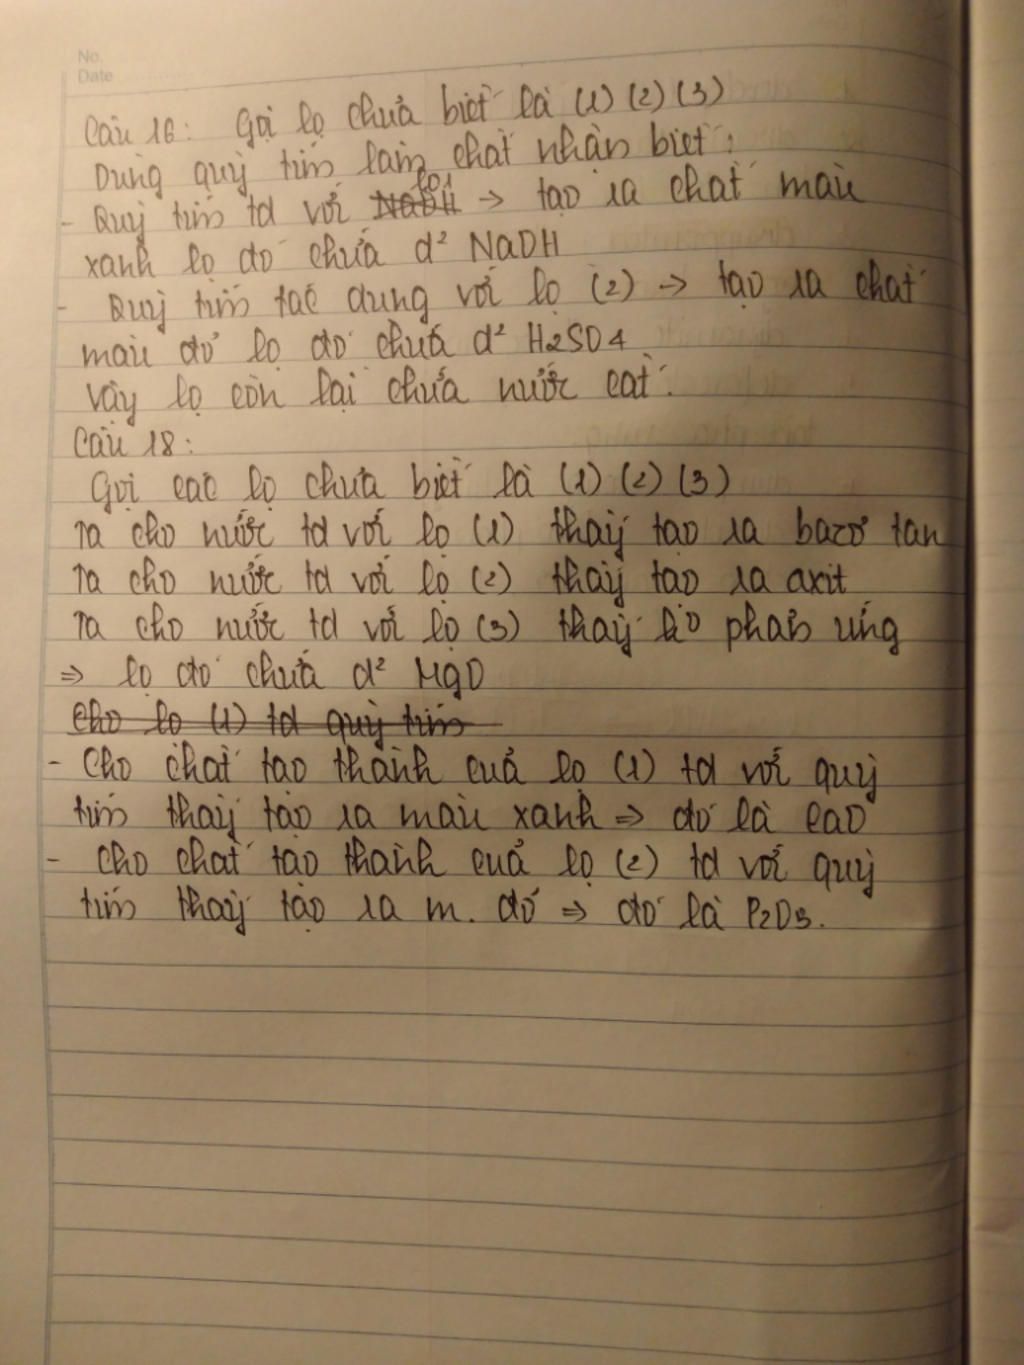 No.
Date
Câu 16: Gọi lọ chưa biết là (1) (2) (3)
Dùng quỳ tím làm chất nhận biết:
- Quỳ tím td với NaOH lọ 1 → tạo ra chất màu
xanh lọ đó chứa d² NaOH
- Quỳ tím tác dụng với lọ (2) → tạo ra chất
màu đỏ lọ đó chứa d² H2SO4
Vậy lọ còn lại chứa nước cất.
Câu 18:
Gọi các lọ chưa biết là (1) (2) (3)
Ta cho nước td với lọ (1) thấy tạo ra bazơ tan
Ta cho nước td với lọ (2) thấy tạo ra axit
Ta cho nước td với lọ (3) thấy ko phản ứng
⇒ lọ đó chứa d² MgO
Cho lọ (1) td quỳ tím
- Cho chất tạo thành của lọ (1) td với quỳ
tím thấy tạo ra màu xanh ⇒ đó là CaO
- Cho chất tạo thành của lọ (2) td với quỳ
tím thấy tạo ra m. đỏ ⇒ đó là P2O5.